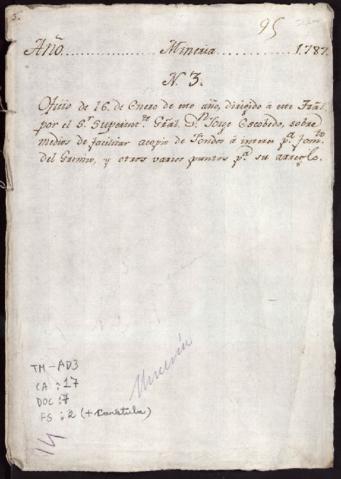 5.
95
Año........Mineria........1787.
N. 3.
Oficio de 16. de Enero de este año, dirigido á este Trâl.
por el Sr. Superintte. Gràl. Dn. Jorge Escobedo, sobre
medios de facilitar acopio de Fondos á interes pa. fomto.
del Gremio, y otros varios puntos pa. su arreglo.
Minería
TM-AD3
CA : 17
DOC : 7
FS : 2 (+ Carátula)
14